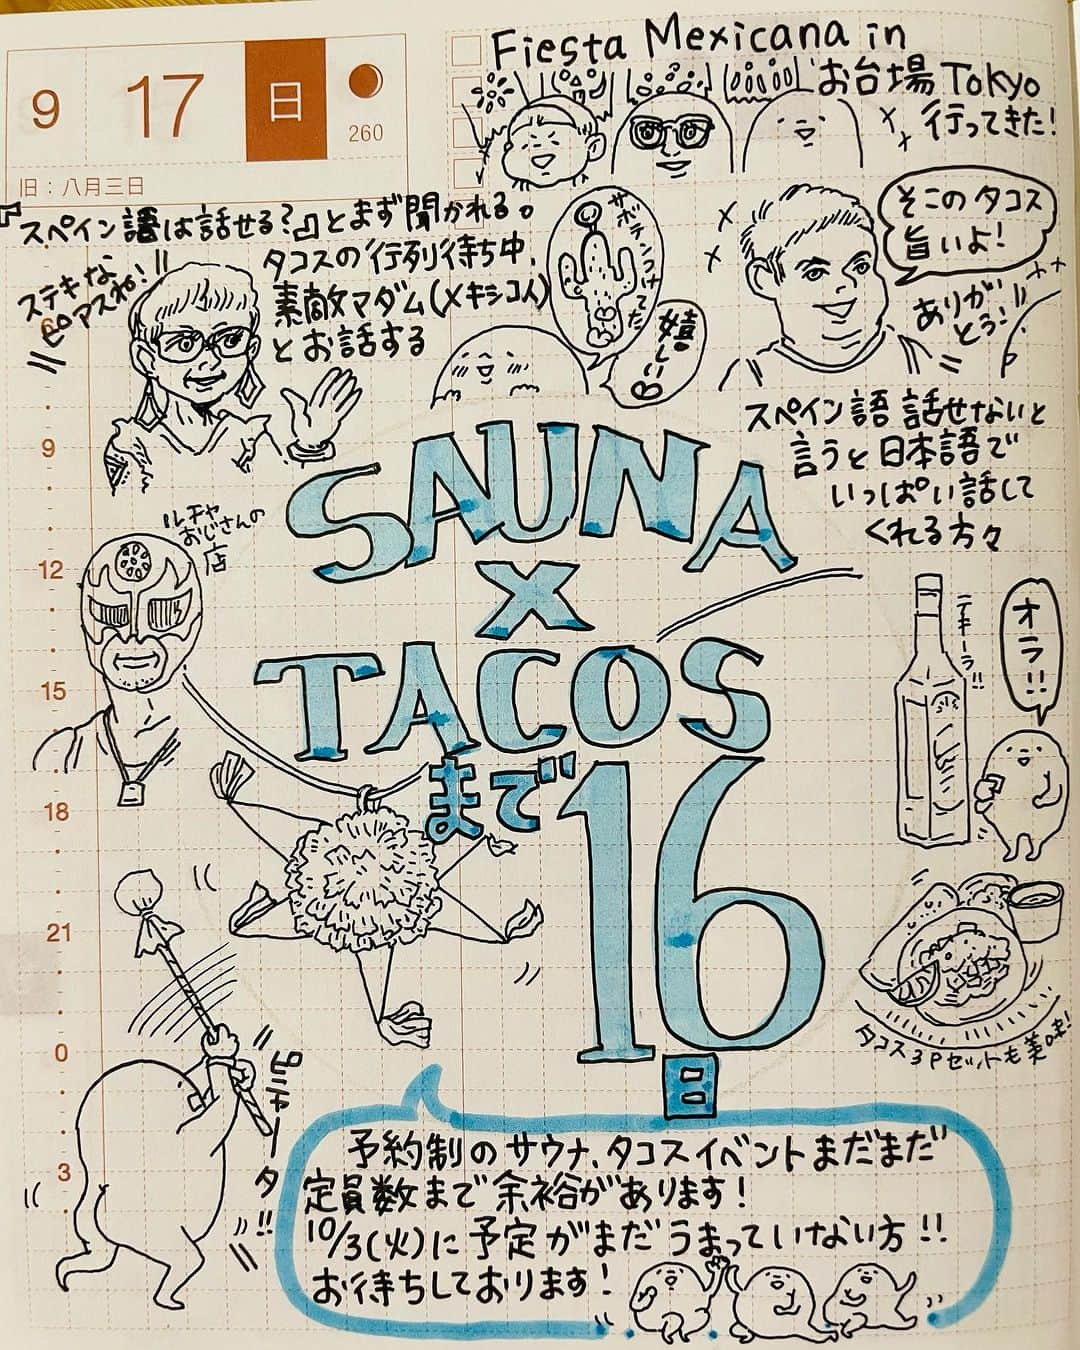 9
17
日
260
旧：八月三日
Fiesta Mexicana in
お台場 Tokyo
行ってきた！
『スペイン語は話せる？』とまず聞かれる。
ステキな
ピアスね！
タコスの行列待ち中、
素敵マダム(メキシコ人)
とお話する
サボテンつけてた
嬉しい♡
そこのタコス
旨いよ！
ありが
とう！！
スペイン語 話せないと
言うと日本語で
いっぱい話して
くれる方々
ルチャ
おじさんの
店
SAUNA
X
TACOS
まで
16
日
テキーラ！！
オラ！！
タコス3Pセットも美味！
ピニャータ！！
9
12
15
18
21
0
3
予約制のサウナ、タコスイベントまだまだ
定員数まで余裕があります！
10/3(火)に予定がまだうまっていない方！！
お待ちしております！